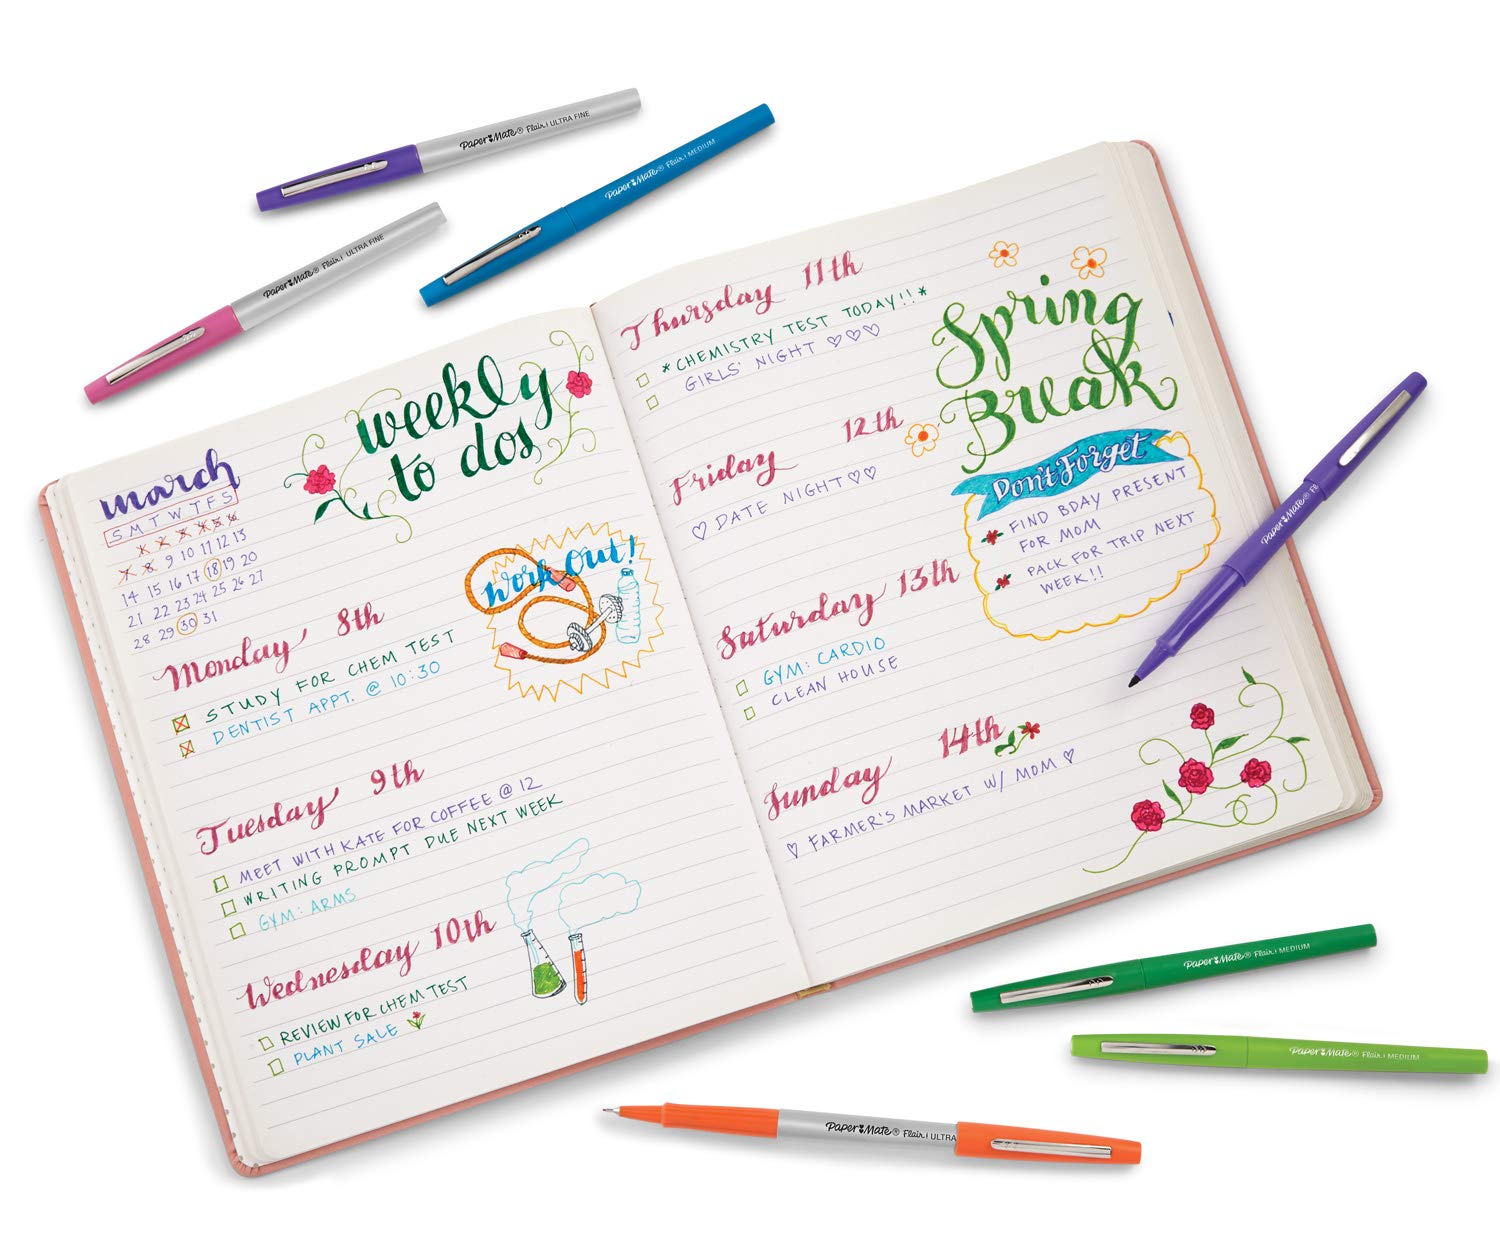 Paper Mate® Flair | ULTRA FINE
Paper Mate® Flair | MEDIUM
Paper Mate® Flair | ULTRA FINE
weekly
to dos
march
S M T W T F S
9 10 11 12 13
14 15 16 17 18 19 20
21 22 23 24 25 26 27
28 29 30 31
Monday 8th
STUDY FOR CHEM TEST
DENTIST APPT. @ 10:30
Work Out!
Tuesday 9th
MEET WITH KATE FOR COFFEE @ 12
WRITING PROMPT DUE NEXT WEEK
GYM: ARMS
Wednesday 10th
REVIEW FOR CHEM TEST
PLANT SALE
Thursday 11th
*CHEMISTRY TEST TODAY!!*
GIRLS' NIGHT ♡♡♡
Spring
Break
Friday 12th
♡ DATE NIGHT ♡♡
Don't Forget
FIND BDAY PRESENT
FOR MOM
PACK FOR TRIP NEXT
WEEK!!
Saturday 13th
GYM: CARDIO
CLEAN HOUSE
Sunday 14th
♡ FARMER'S MARKET W/ MOM ♡
Paper Mate® F
Paper Mate® Flair | MEDIUM
Paper Mate® Flair | MEDIUM
Paper Mate® Flair | ULTRA